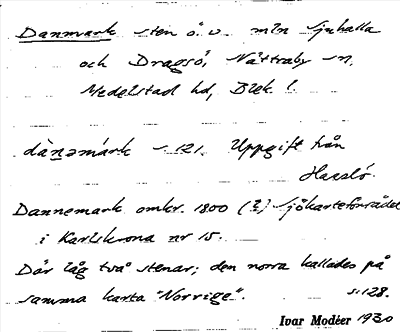 Danmark sten ö. v. mln Sjuhalla
och Dragsö, Nättraby sn,
Medelstad hd, Blek. l.
dànəmárk s. 121. Uppgift från
Hasslö.
Dannemark omkr. 1800 (?) Sjökarteförrådet
i Karlskrona nr 15.
Där låg två stenar; den norra kallades på
samma karta "Norrige". s. 128.
Ivar Modéer 1930